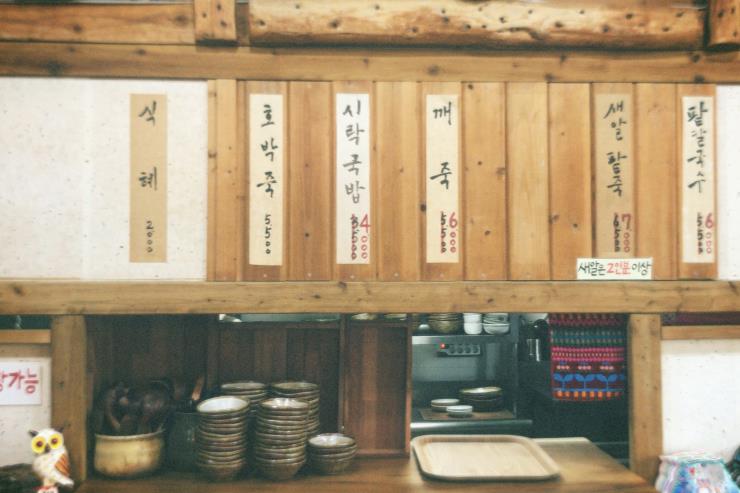 식혜 2000
호박죽 5500
시락국밥 4000
깨죽 6000
새알팥죽 7000
팥칼국수 6000
새알은 2인분이상
가능